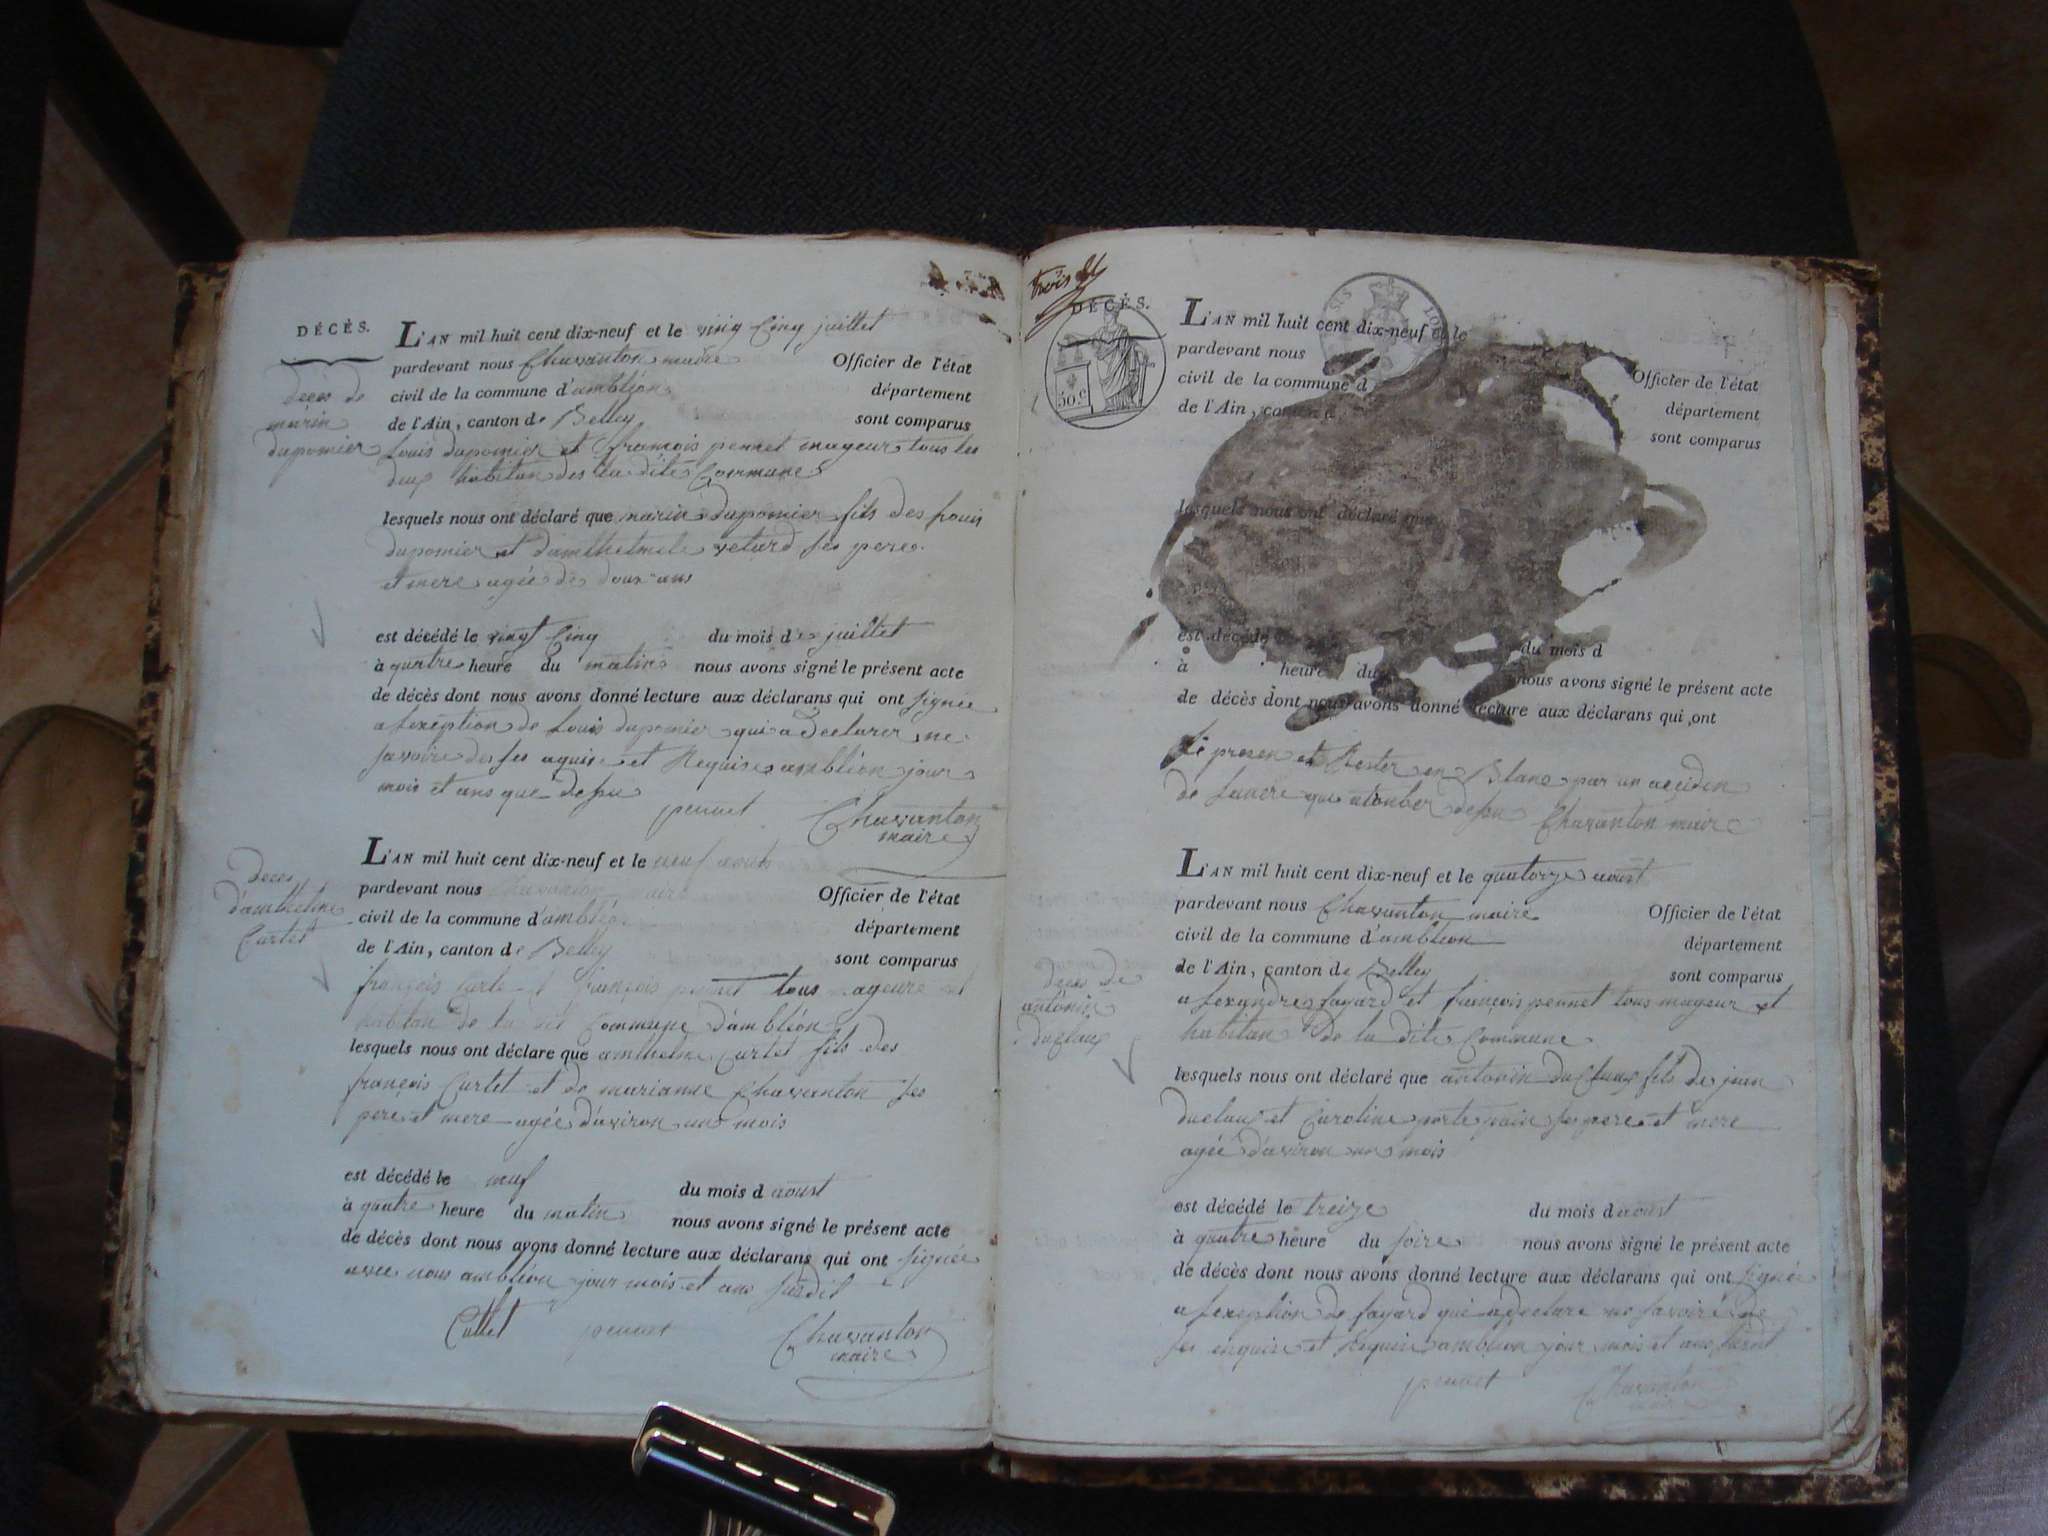 DÉCÈS.
L'AN mil huit cent dix-neuf et le vingt Cinq juillet
pardevant nous Chavanton maire Officier de l'état
civil de la commune d'ambléon département
de l'Ain, canton de Belley sont comparus
décès de
marin
dupomier
Louis dupomier et françois pennet mageur tous les
deux habitan des la dite Commune
lesquels nous ont déclaré que marin dupomier fils des louis
dupomier et d'amthelmele veturd ses pere
et mere agée de deux ans
est décédé le vingt Cinq du mois de juillet
à quatre heure du matin nous avons signé le présent acte
de décès dont nous avons donné lecture aux déclarans qui ont signée
a lexeption de Louis dupomier qui a declarer ne
savoire de ses aquis et Requise ambléon jour
mois et ans que desu
pennet Chavanton
maire
deces
d'amthelme
Curtet
L'AN mil huit cent dix-neuf et le neuf aoust
pardevant nous Chavanton maire Officier de l'état
civil de la commune d'ambléon département
de l'Ain, canton de Belley sont comparus
françois curtet et françois pennet tous mageure et
habitan de la dit Commune d'ambléon
lesquels nous ont déclaré que amthelme Curtet fils des
françois Curtet et de marianne Chavanton ses
pere et mere agée d'aviron un mois
est décédé le neuf du mois d aoust
à quatre heure du matin nous avons signé le présent acte
de décès dont nous avons donné lecture aux déclarans qui ont signée
avec nous ambléon jour mois et ans susdit
Curtet pennet Chavanton
maire
trois
DÉCÈS.
50.c
L'AN mil huit cent dix-neuf et le
pardevant nous Officier de l'état
civil de la commune d département
de l'Ain, canton d sont comparus
lesquels nous ont déclaré que
est décédé du mois d
à heure du nous avons signé le présent acte
de décès dont nous avons donné lecture aux déclarans qui ont
Le presen et Rester en Blanc par un acciden
de lancre qui a tomber desu Chavanton maire
L'AN mil huit cent dix-neuf et le quatorze aoust
pardevant nous Chavanton maire Officier de l'état
civil de la commune d'ambléon département
de l'Ain, canton de Belley sont comparus
deces de
antonin
duclaux
alexandre fayard et françois pennet tous mageur et
habitan de la dite Commune
lesquels nous ont déclaré que antonin duclaux fils de jean
duclaux et Caroline porte pain ses pere et mere
agée d'aviron un mois
est décédé le treize du mois d aoust
à quatre heure du soire nous avons signé le présent acte
de décès dont nous avons donné lecture aux déclarans qui ont signée
a lexeption de fayard qui a declare ne savoire de
ses enquise et Requise ambléon jour mois et ans susdit
pennet Chavanton
maire